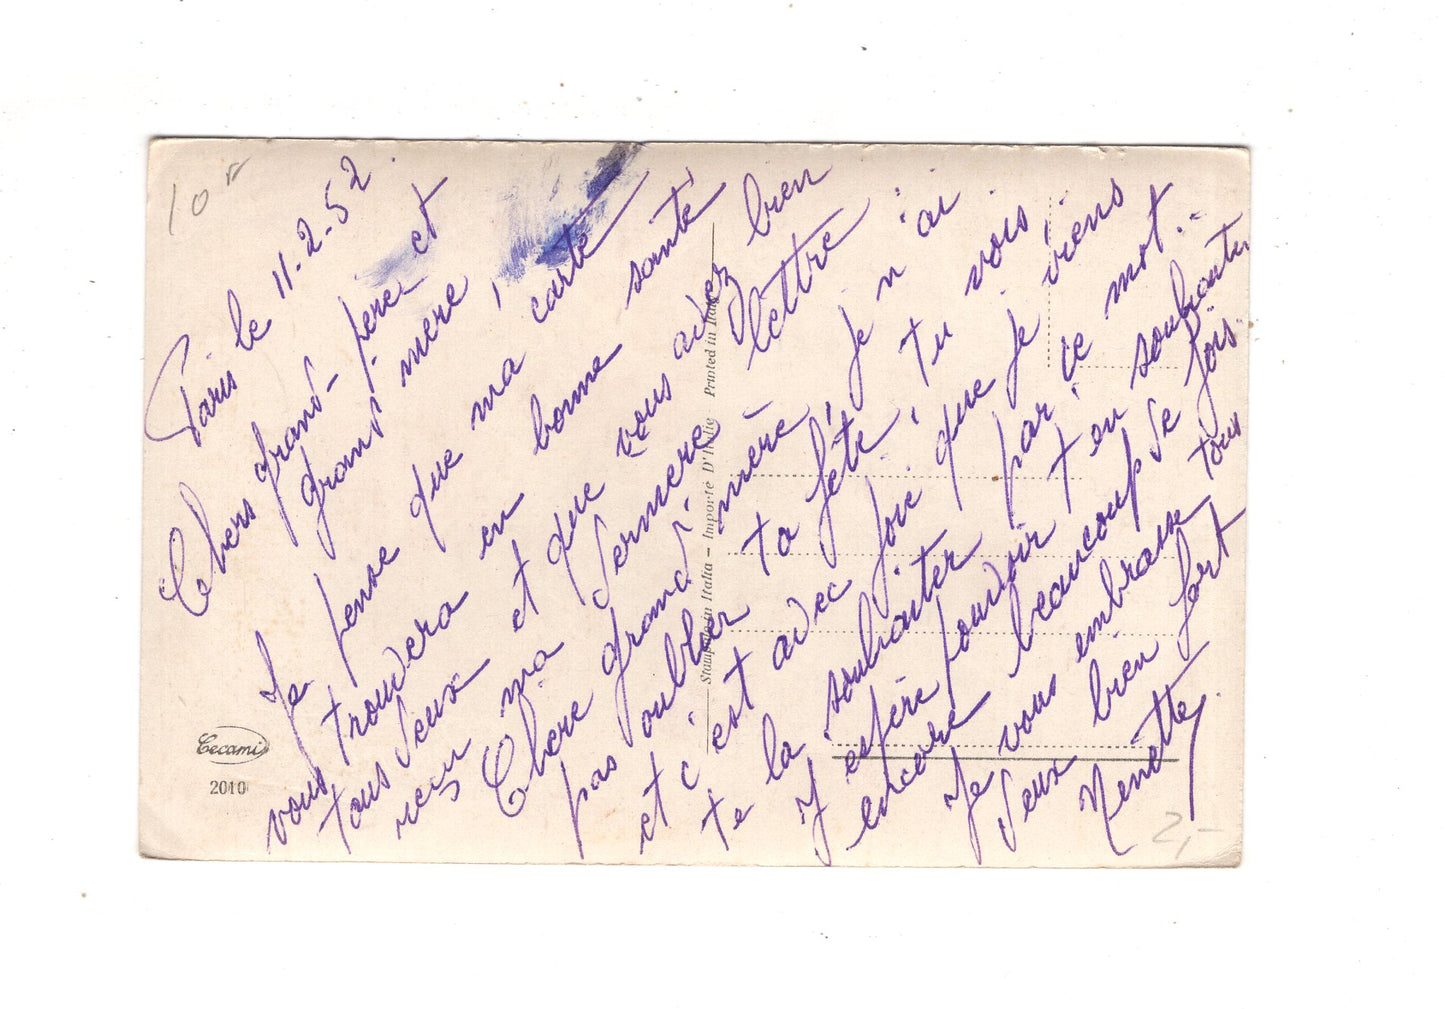 Paris le 11-2-52.
Chers grand-père et
grand mère
Je pense que ma carte
vous trouvera en bonne santé
tous deux et que vous avez bien
reçu ma dernière lettre
Chère grand mère, je n'ai
pas oublier ta fête, tu vois
et c'est avec joie que je viens
te la souhaiter par ce mot.
J'espère pouvoir t'en souhaiter
encore beaucoup de fois.
Je vous embrasse tous
deux bien fort
Nenette
10 F
Cecami
2010
Stampato in Italia – Importé D'Italie Printed in Italy
2,-